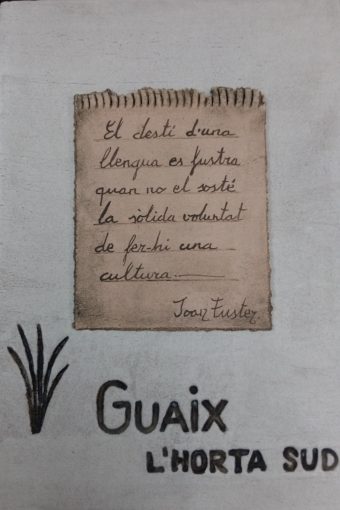 El destí d'una
llengua es frustra
quan no el sosté
la sòlida voluntat
de fer-hi una
cultura
Joan Fuster.
GUAIX
L'HORTA SUD